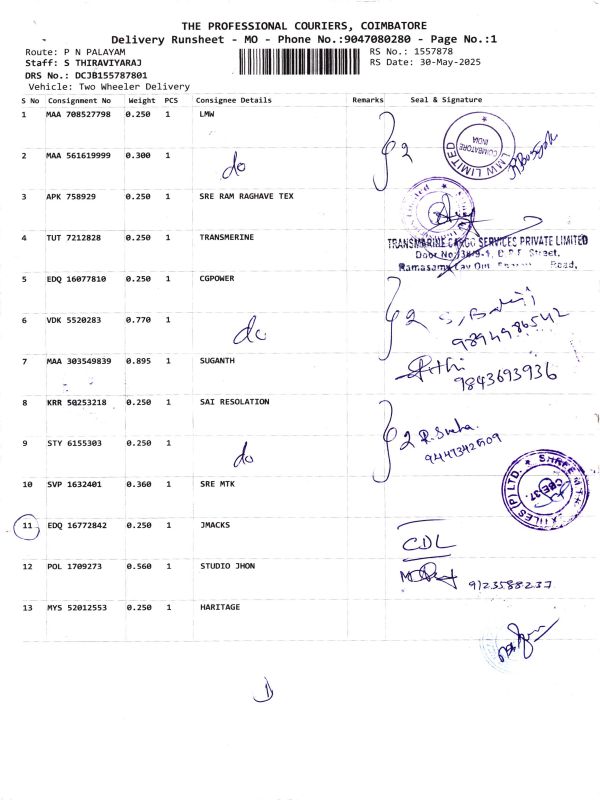 THE PROFESSIONAL COURIERS, COIMBATORE
Delivery Runsheet - MO - Phone No.:9047080280 - Page No.:1
Route: P N PALAYAM
RS No.: 1557878
Staff: S THIRAVIYARAJ
RS Date: 30-May-2025
DRS No.: DCJB155787801
Vehicle: Two Wheeler Delivery
S No Consignment No Weight PCS Consignee Details Remarks Seal & Signature
1 MAA 708527798 0.250 1 LMW
2
LMW LIMITED
COIMBATORE
INDIA
2 MAA 561619999 0.300 1 do
3 APK 758929 0.250 1 SRE RAM RAGHAVE TEX
4 TUT 7212828 0.250 1 TRANSMERINE
TRANSMARINE CARGO SERVICES PRIVATE LIMITED
Door No. Street.
Ramasamy Lay Out Road,
5 EDQ 16077810 0.250 1 CGPOWER
2
6 VDK 5520283 0.770 1 do
9894986542
7 MAA 303549839 0.895 1 SUGANTH
9843693936
8 KRR 50253218 0.250 1 SAI RESOLATION
2 R. Sneha.
9 STY 6155303 0.250 1 do
10 SVP 1632401 0.360 1 SRE MTK
SHREE MTK TEXTILES (P) LTD.
CBE-37.
11 EDQ 16772842 0.250 1 JMACKS
CDL
12 POL 1709273 0.560 1 STUDIO JHON
9123588237
13 MYS 52012553 0.250 1 HARITAGE